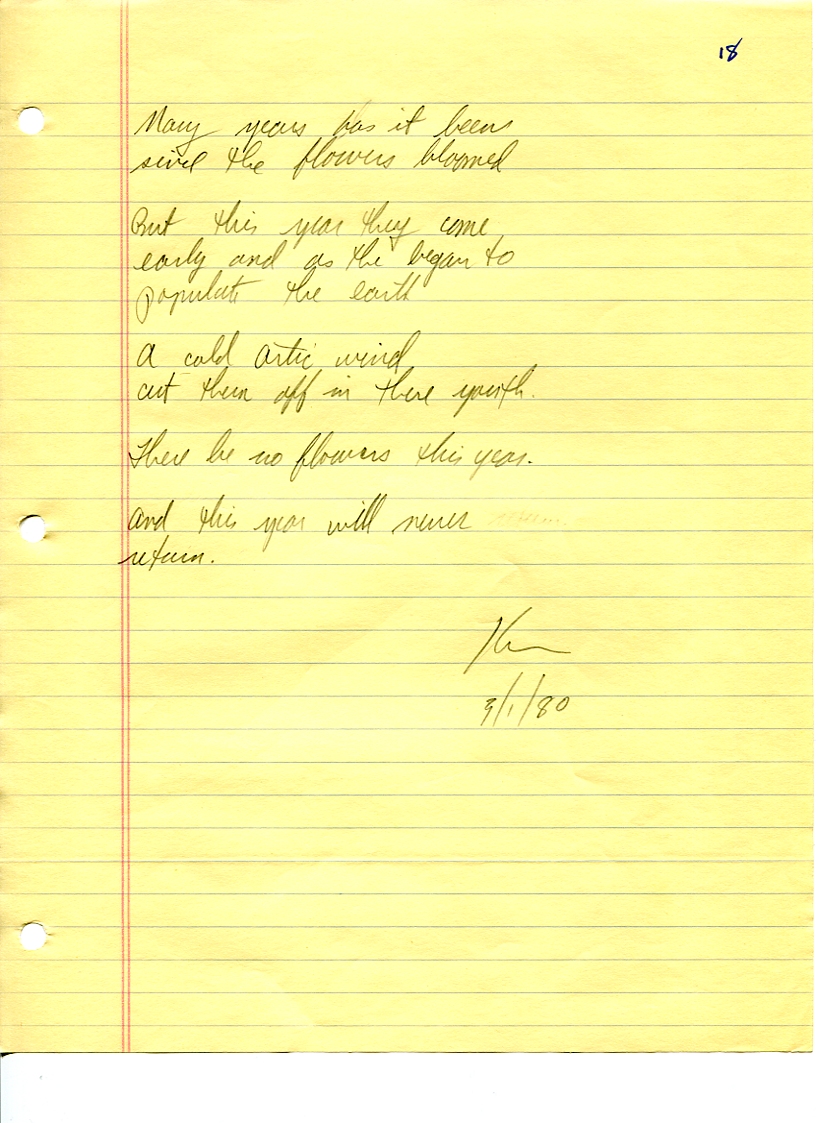 18
Many years has it been
since the flowers bloomed
But this year they come
early and as the began to
populate the earth
A cold Artic wind
cut them off in there youth.
There be no flowers this year.
And this year will never
return.
3/1/80